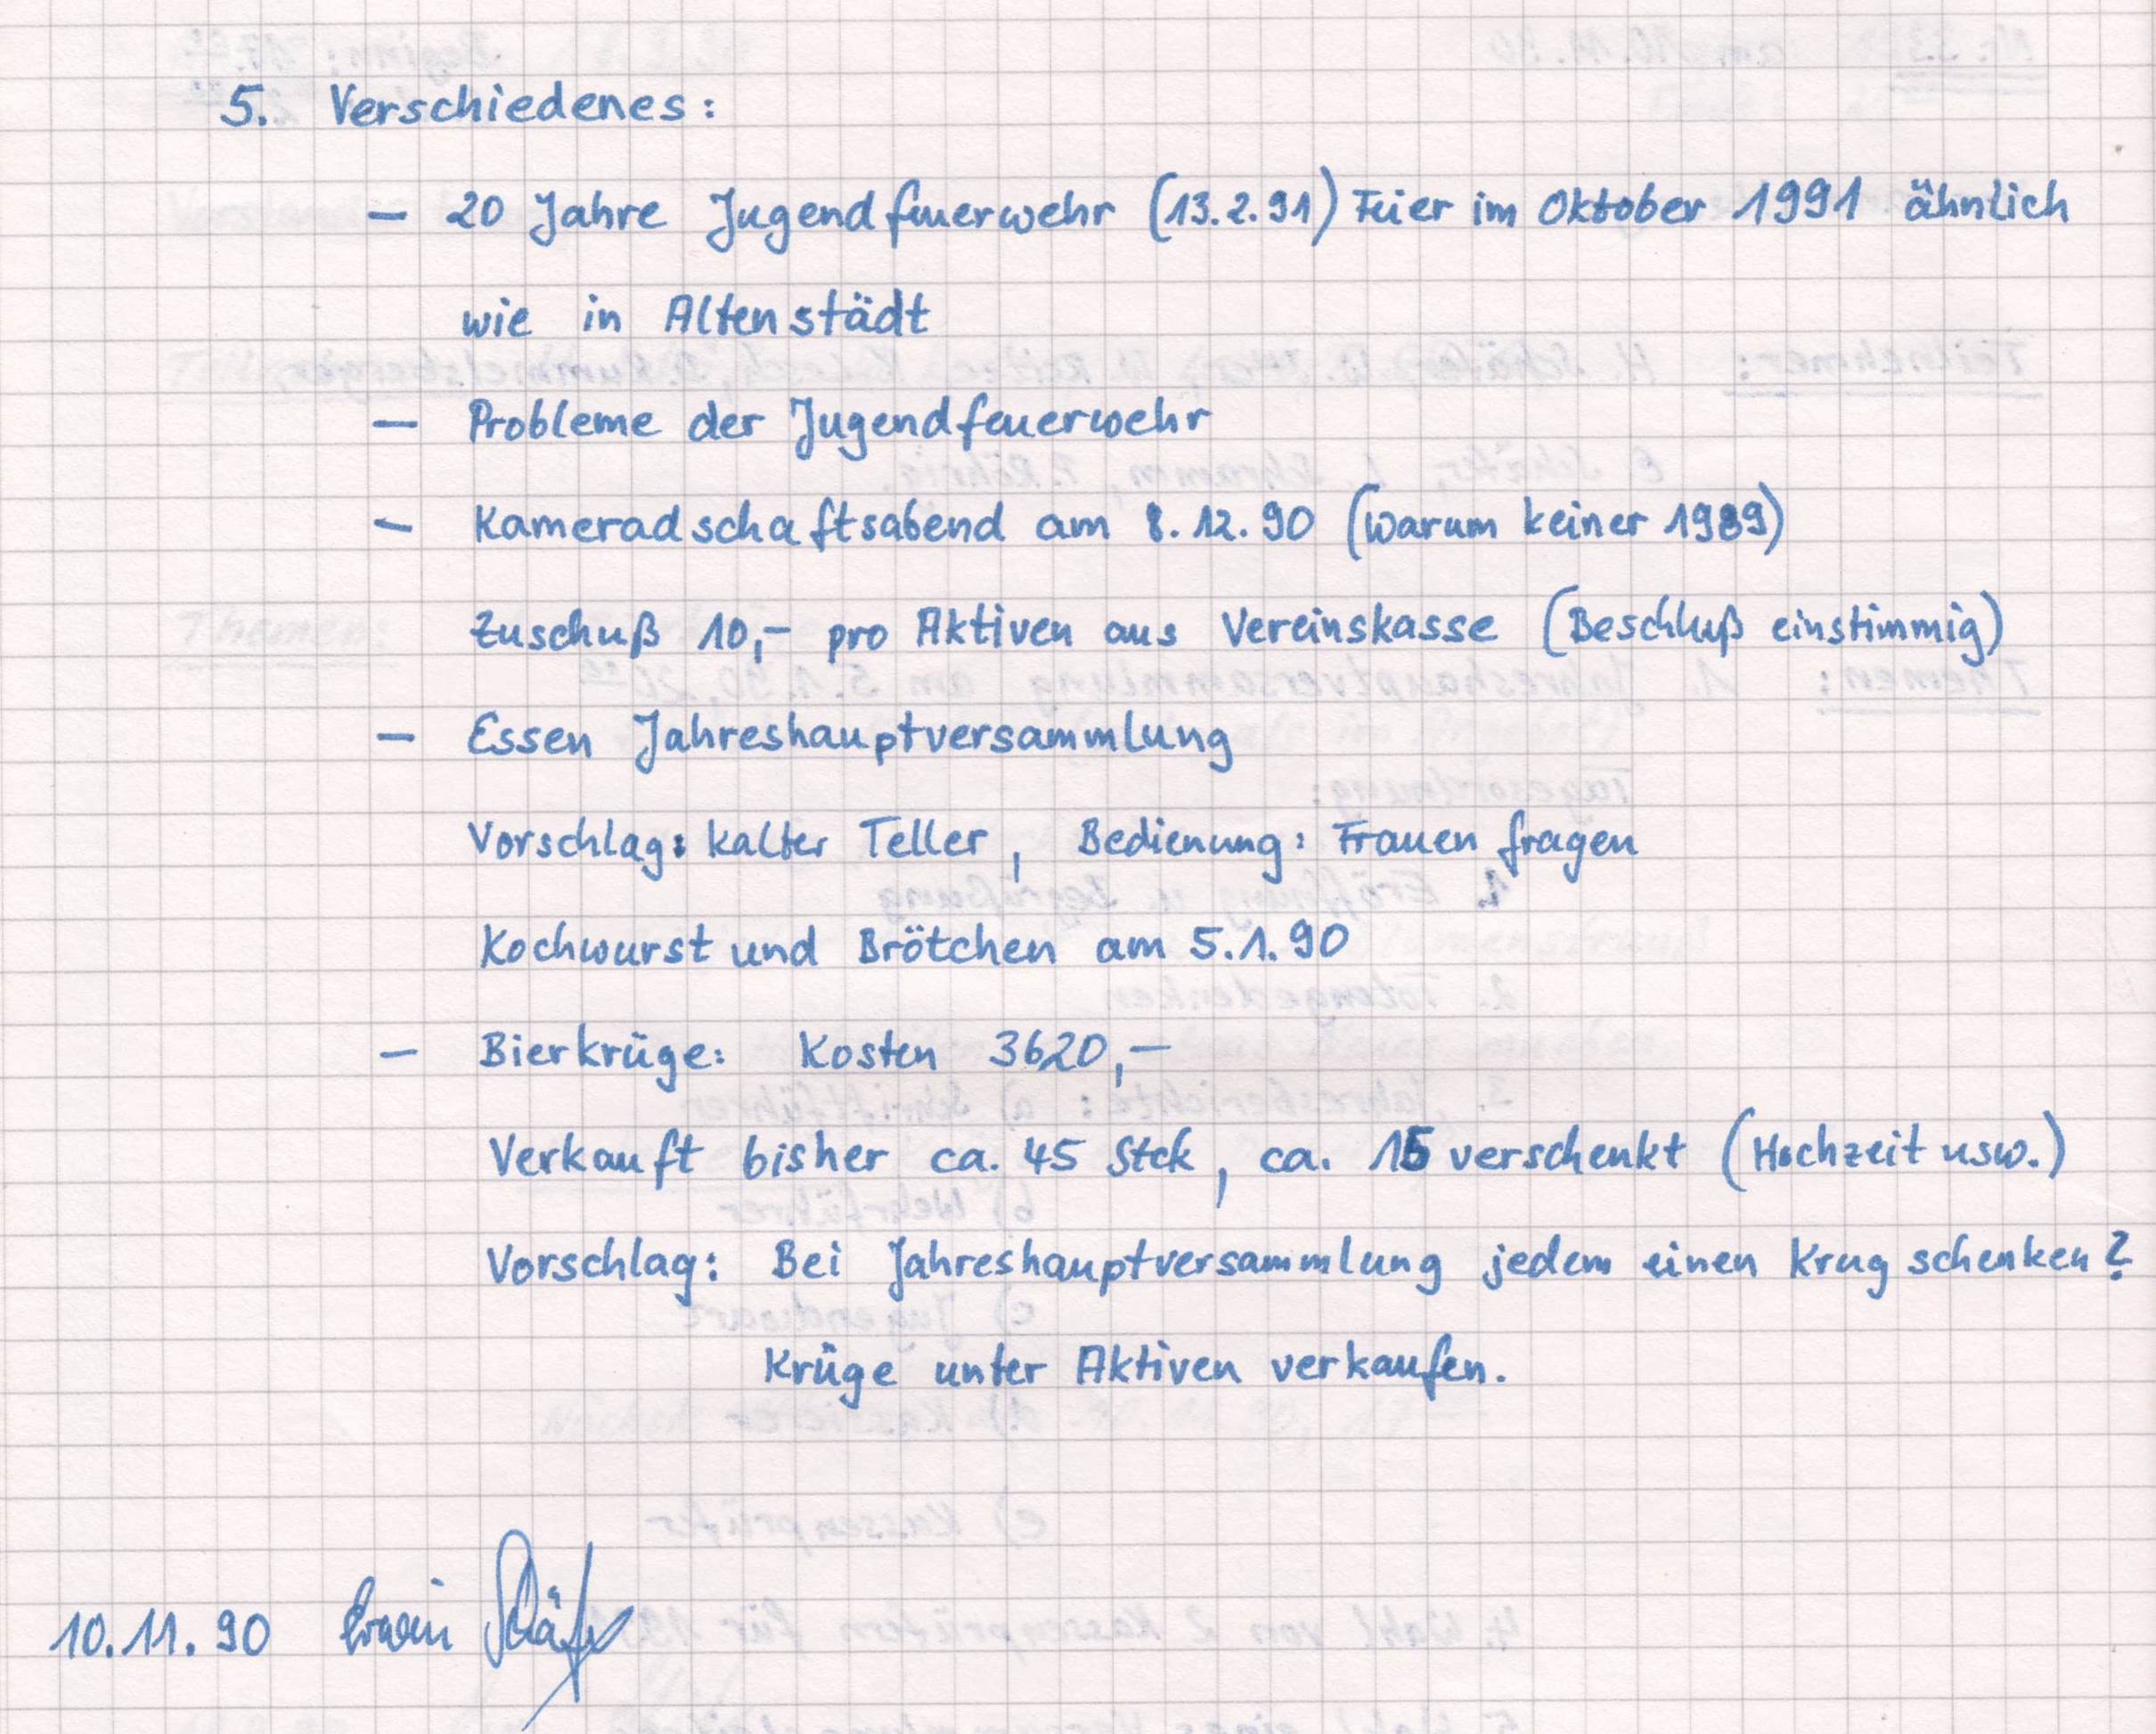 5. Verschiedenes:
– 20 Jahre Jugendfeuerwehr (13.2.91) Feier im Oktober 1991 ähnlich
wie in Altenstädt
– Probleme der Jugendfeuerwehr
– Kameradschaftsabend am 8.12.90 (Warum keiner 1989)
Zuschuß 10,– pro Aktiven aus Vereinskasse (Beschluß einstimmig)
– Essen Jahreshauptversammlung
Vorschlag: kalter Teller, Bedienung: Frauen fragen
Kochwurst und Brötchen am 5.1.90
– Bierkrüge: Kosten 3620,–
Verkauft bisher ca. 45 Stck, ca. 15 verschenkt (Hochzeit usw.)
Vorschlag: Bei Jahreshauptversammlung jedem einen Krug schenken?
Krüge unter Aktiven verkaufen.
10.11.90 Erwin Schäfer